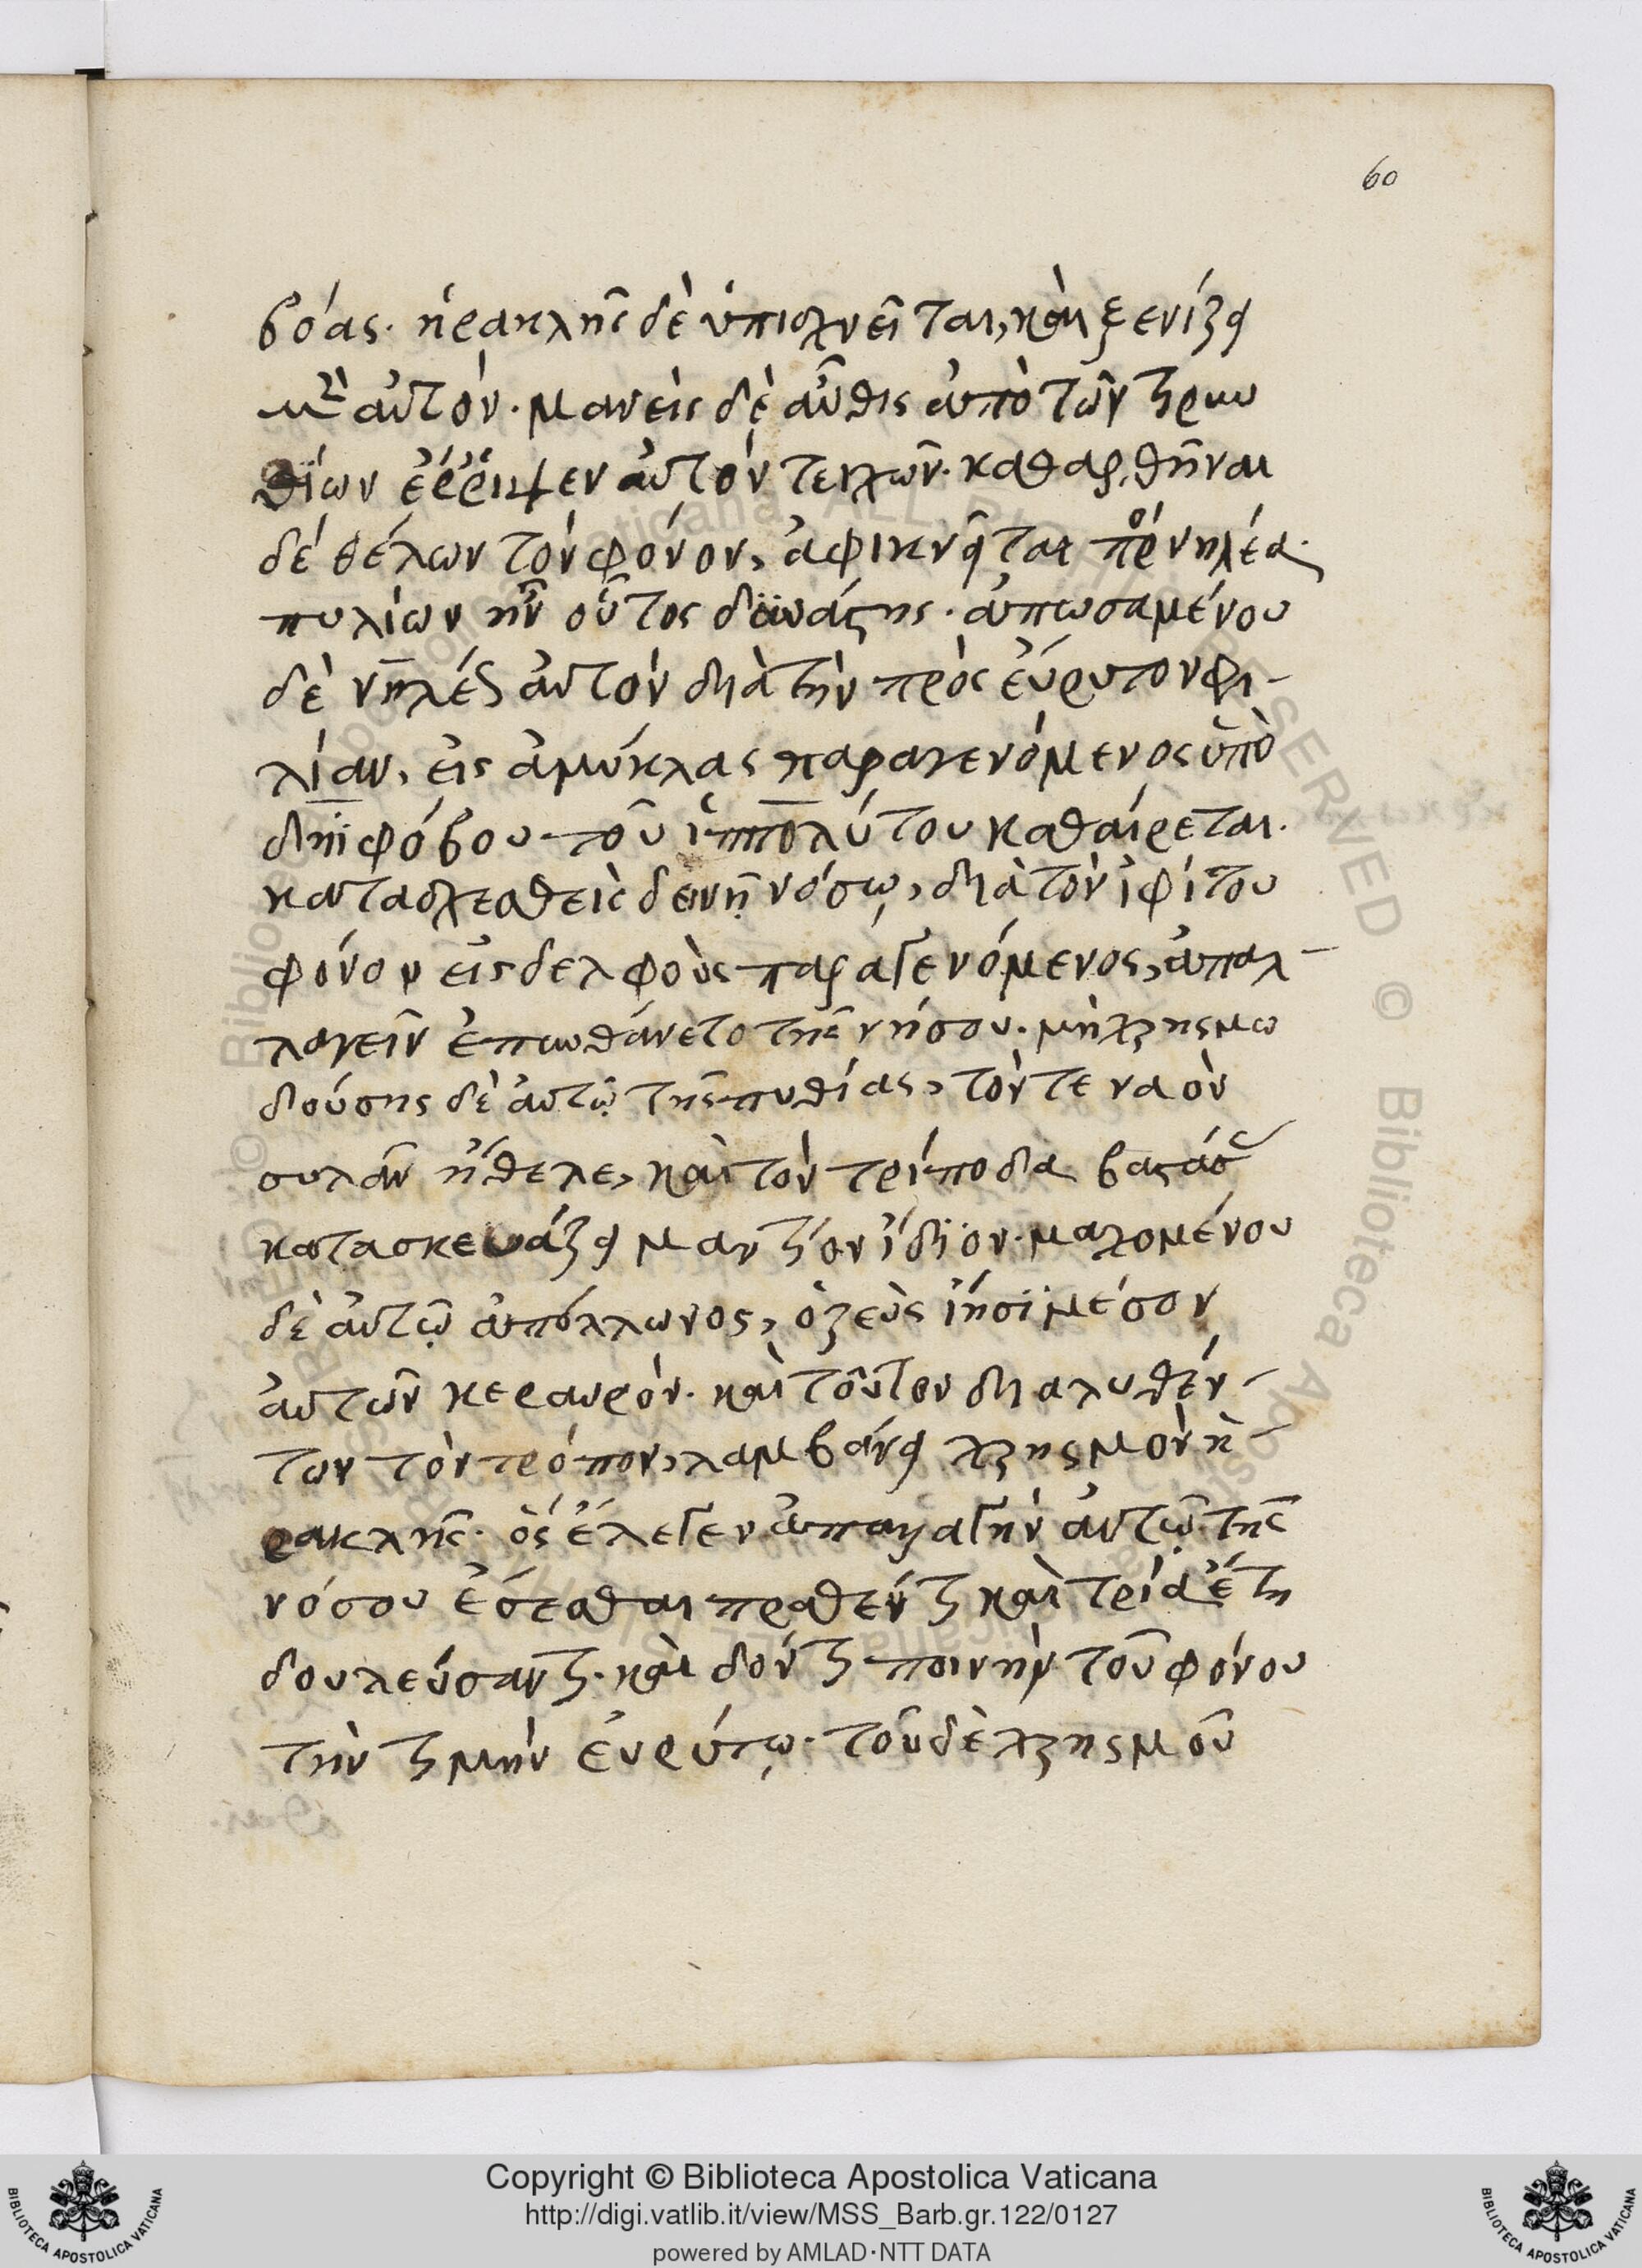 60
βόας. ἡρακλῆς δὲ ὑπισχνεῖται, καὶ ξενίζει
μὲν αὐτόν. μανεὶς δὲ αὖθις ἀπὸ τῶν τιρυν
θίων ἔῤῥιψεν αὐτὸν τειχῶν. καθαρθῆναι
δὲ θέλων τὸν φόνον, ἀφικνεῖται πρὸς νηλέα.
πυλίων ἦν οὗτος δυνάστης. ἀπωσαμένου
δὲ νηλέως αὐτὸν διὰ τὴν πρὸς εὔρυτον φι-
λίαν, εἰς ἀμύκλας παραγενόμενος ὑπὸ
δηϊφόβου τοῦ ἱππολύτου καθαίρεται.
κατασχεθεὶς δεινῇ νόσῳ, διὰ τὸν ἰφίτου
φόνον εἰς δελφοὺς παραγενόμενος, ἀπαλ-
λαγεῖν ἐπυνθάνετο τῆς νήσου. μὴ χρησμω
δούσης δὲ αὐτῷ τῆς πυθίας, τόν τε ναὸν
συλᾶν ἤθελε, καὶ τὸν τρίποδα βαστάσας
κατασκευάζει μαντεῖον ἴδιον. μαχομένου
δὲ αὐτῷ ἀπόλλωνος, ὁ ζεὺς ἵησϊ μέσον
αὐτῶν κεραυνόν. καὶ τοῦτον διαλυθέν-
των τὸν τρόπον, λαμβάνει χρησμὸν ἡ-
ρακλῆς. ὃς ἔλεγεν ἀπαλλαγὴν αὐτῷ τῆς
νόσου ἔσεσθαι πραθέντι καὶ τρία ἔτη
δουλεύσαντι. καὶ δόντι ποινὴν τοῦ φόνου
τὴν τιμὴν εὐρύτῳ. τοῦ δὲ χρησμοῦ
© Biblioteca Apostolica Vaticana ALL RIGHTS RESERVED
Copyright © Biblioteca Apostolica Vaticana
http://digi.vatlib.it/view/MSS_Barb.gr.122/0127
powered by AMLAD·NTT DATA
BIBLIOTECA APOSTOLICA VATICANA
BIBLIOTECA APOSTOLICA VATICANA